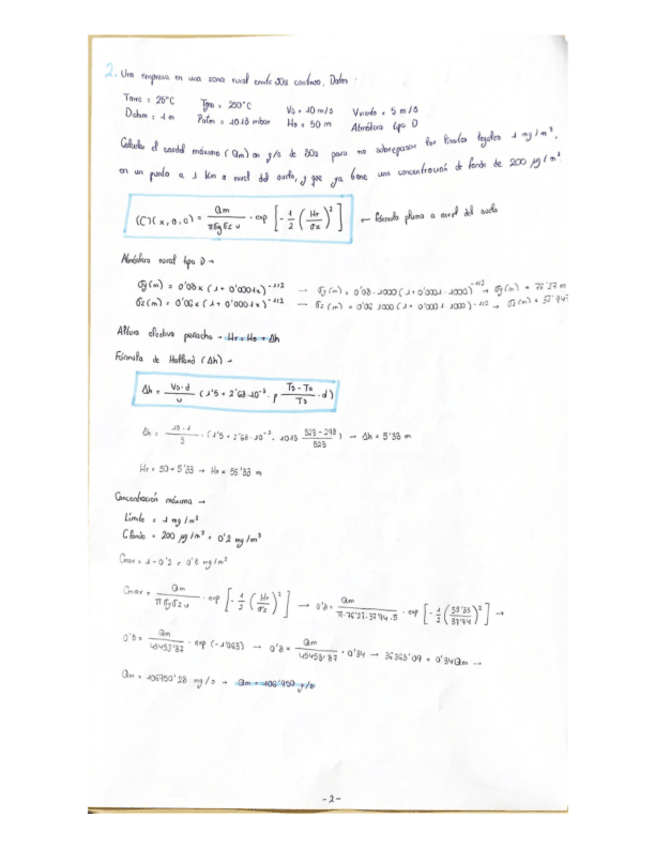 2. Una empresa en una zona rural emite SO2 continuo. Datos:
Taire = 25°C Tgas = 250°C Vs = 10 m/s Vviento = 5 m/s
Dchim = 1 m Patm = 1013 mbar Ho = 50 m Atmósfera tipo D
Calcular el caudal máximo (Qm) en g/s de SO2 para no sobrepasar los límites legales 1 mg/m³,
en un punto a 1 Km a nivel del suelo, y que ya tiene una concentración de fondo de 200 µg/m³.
(C)(x,0,0) = Qm / πσyσz u · exp [ - 1/2 ( Hr / σz )² ] ← Fórmula pluma a nivel del suelo
Atmósfera rural tipo D →
σy(m) = 0'08x (1 + 0'0001x)^-1/2 → σy(m) = 0'08 · 1000 (1 + 0'0001 · 1000)^-1/2 → σy(m) = 76'27 m
σz(m) = 0'06x (1 + 0'0001x)^-1/2 → σz(m) = 0'06 · 1000 (1 + 0'0001 · 1000)^-1/2 → σz(m) = 37'947
Altura efectiva penacho → Hr = Ho + Δh
Fórmula de Holland (Δh) →
Δh = Vs·d / u (1'5 + 2'68·10^-3 · P Ts - Ta / Ts · d)
Δh = 10·1 / 5 · (1'5 + 2'68·10^-3 · 1013 523 - 298 / 523) → Δh = 5'33 m
Hr = 50 + 5'33 → Hr = 55'33 m
Concentración máxima →
Límite = 1 mg/m³
Cfondo = 200 µg/m³ = 0'2 mg/m³
Cmax = 1 - 0'2 = 0'8 mg/m³
Cmax = Qm / πσyσz u · exp [ - 1/2 ( Hr / σz )² ] → 0'8 = Qm / π·76'27·37'94·5 · exp [ - 1/2 ( 55'33 / 37'94 )² ] →
0'8 = Qm / 45453'87 · exp (-1'063) → 0'8 = Qm / 45453'87 · 0'34 → 36363'09 = 0'34Qm →
Qm = 106950'28 mg/s → Qm = 106'950 g/s
-2-